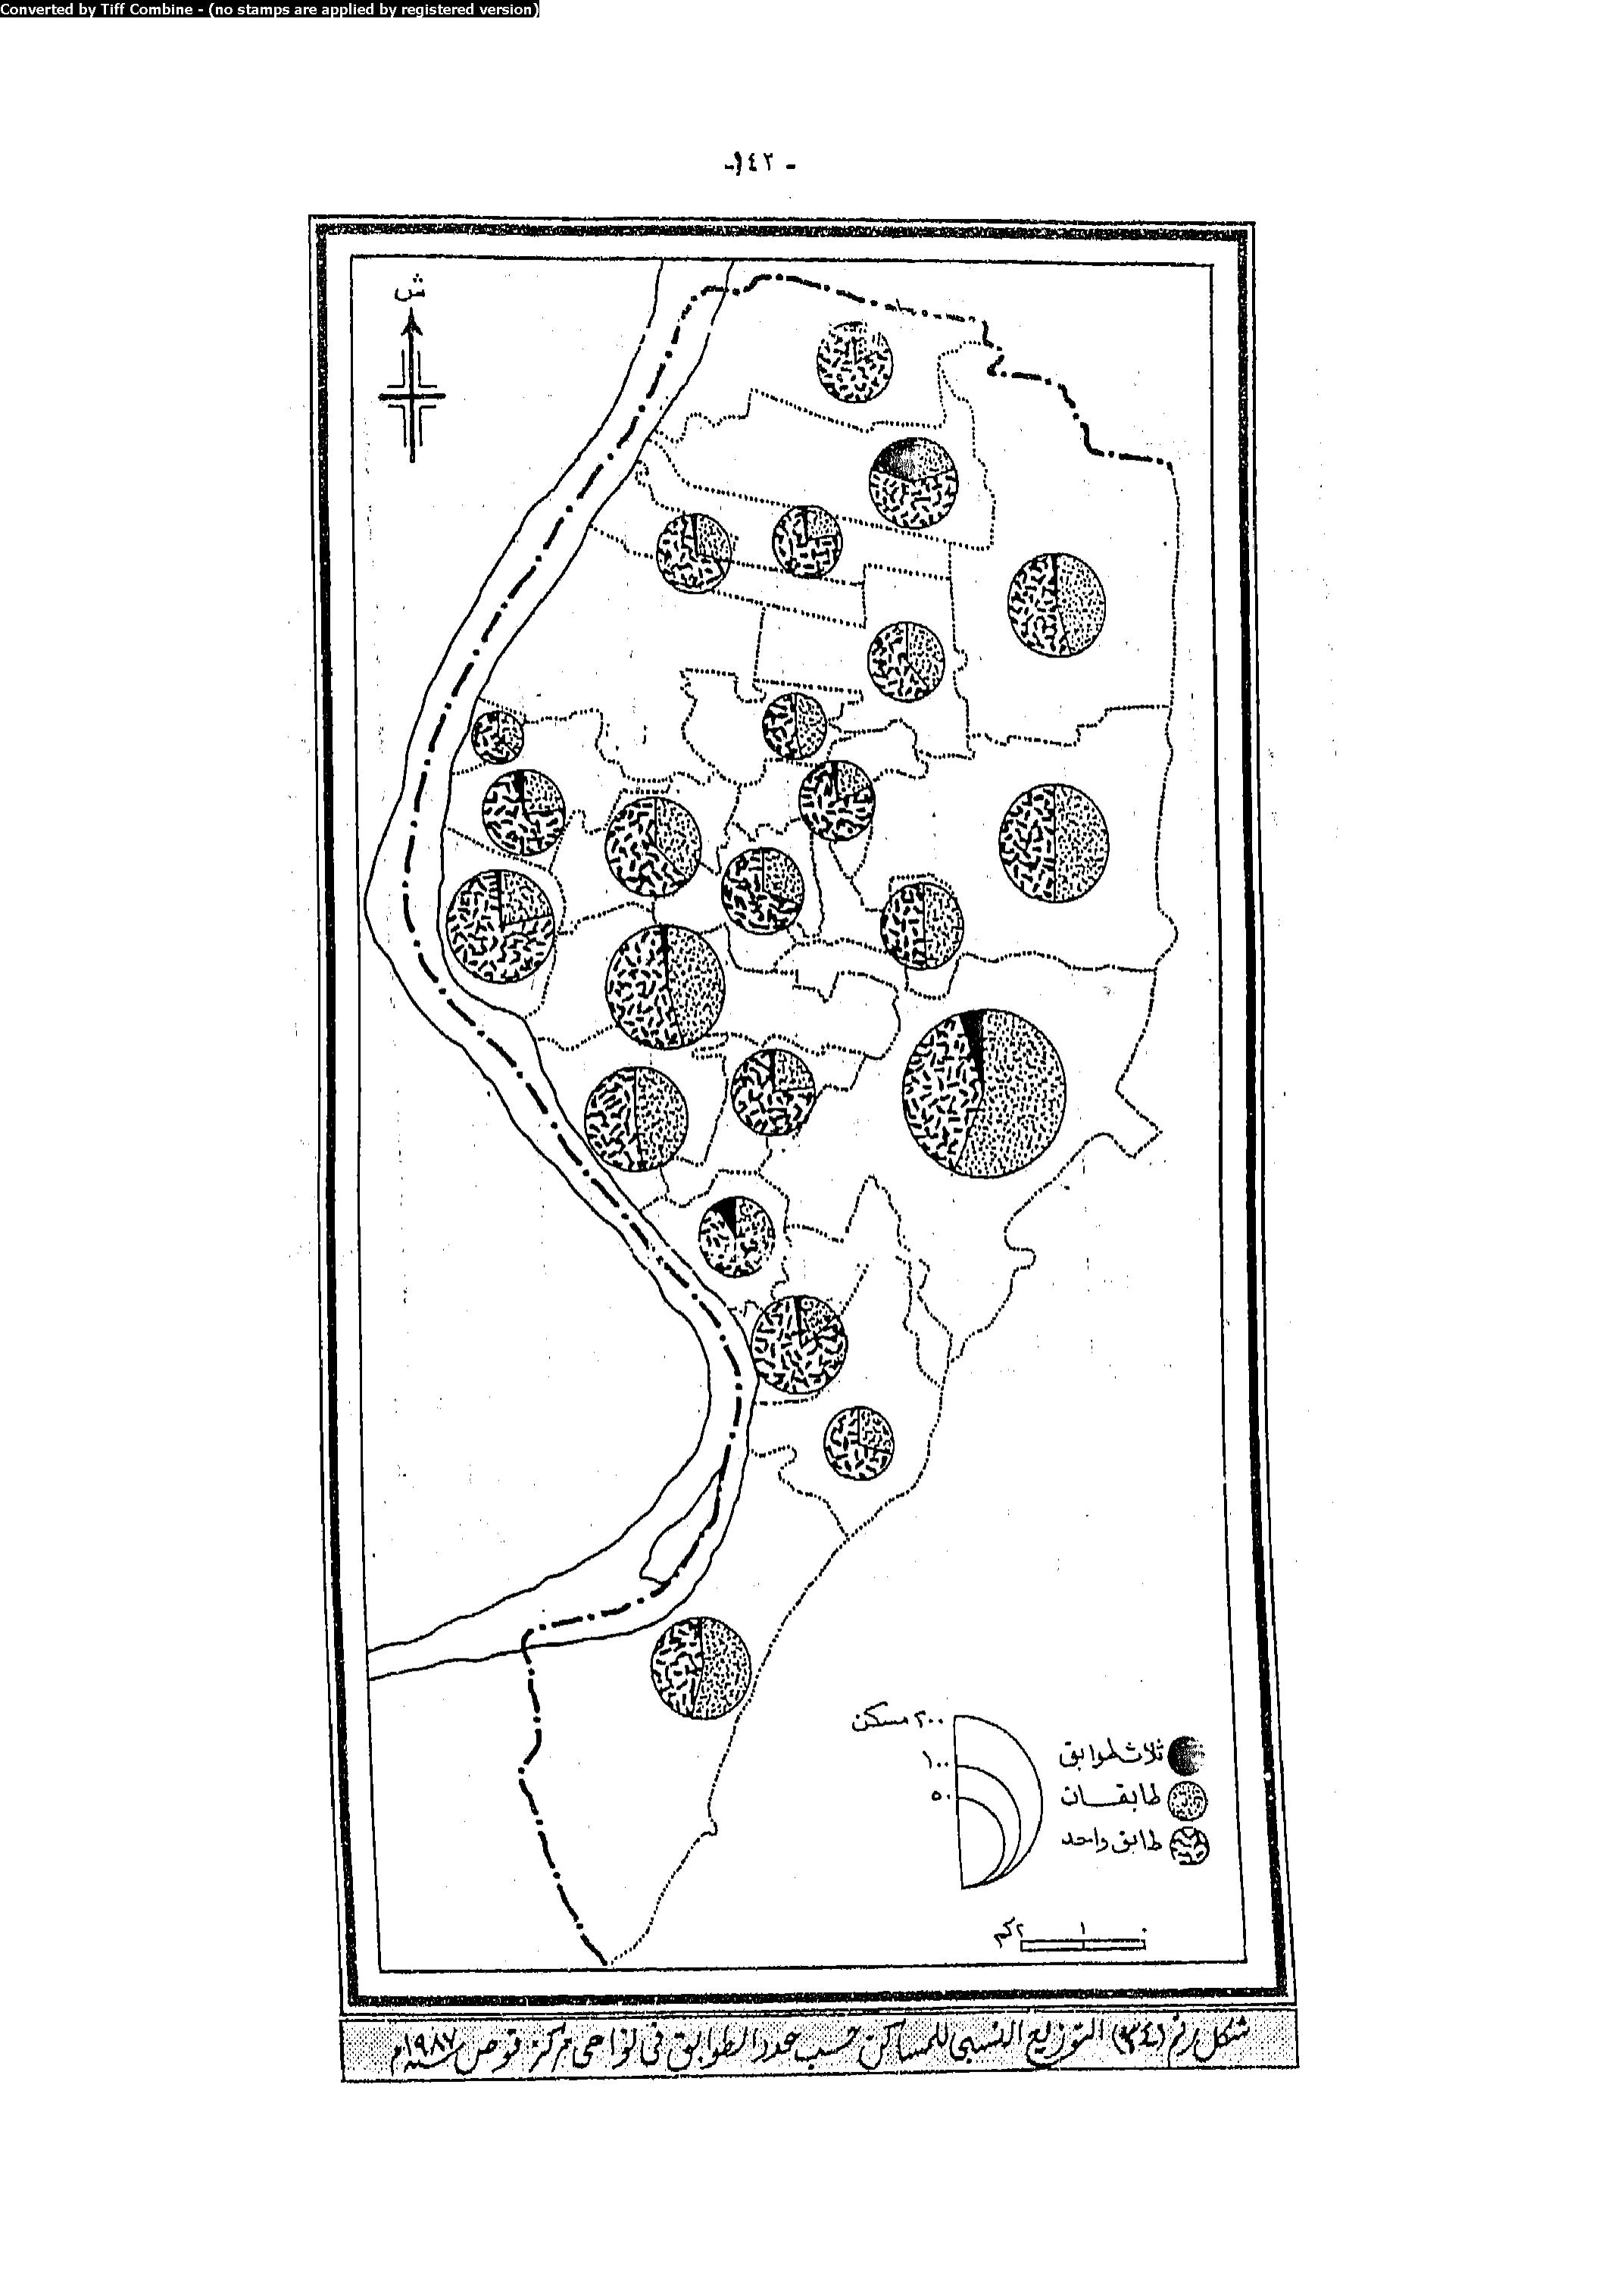 Converted by Tiff Combine - (no stamps are applied by registered version)
- ١٤٢ -
ش
٢٠٠ مسكن
١٠٠
٥٠
ثلاث طوابق
طابقان
طابق واحد
٢كم ١ ٠
شكل رقم (٣٤) التوزيع النسبي للمساكن حسب عدد الطوابق في نواحي مركز قوص سنة ١٩٨٧م